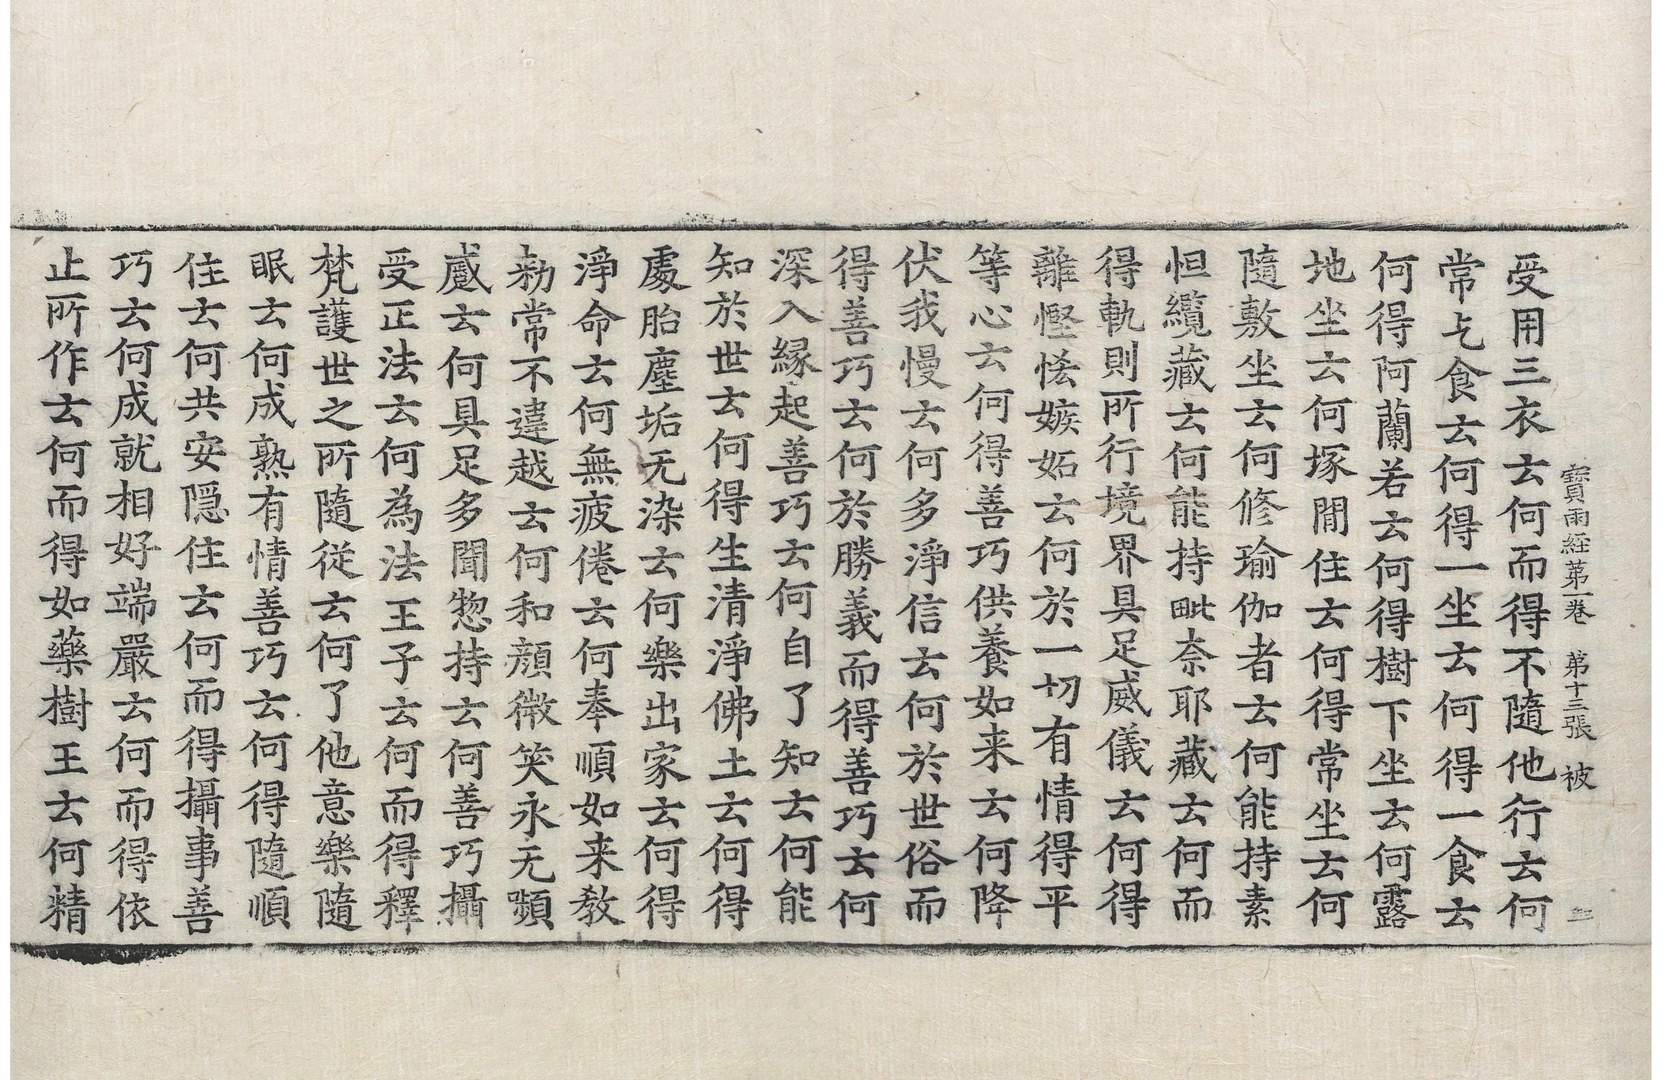 寶雨経苐一卷 苐十三張 被
受用三衣云何而得不隨他行云何
常乞食云何得一坐云何得一食云
何得阿蘭若云何得樹下坐云何露
地坐云何塚閒住云何得常坐云何
隨敷坐云何修瑜伽者云何能持素
怛纜藏云何能持毗奈耶藏云何而
得軌則所行境界具足威儀云何得
離慳悋嫉妬云何於一切有情得平
等心云何得善巧供養如来云何降
伏我慢云何多淨信云何於世俗而
得善巧云何於勝義而得善巧云何
深入縁起善巧云何自了知云何能
知於世云何得生清淨佛土云何得
處胎塵垢无染云何樂出家云何得
淨命云何無疲倦云何奉順如来教
勑常不違越云何和顔微笑永无嚬
慼云何具足多聞惣持云何善巧攝
受正法云何為法王子云何而得釋
梵護世之所隨従云何了他意樂隨
眠云何成熟有情善巧云何得隨順
住云何共安隠住云何而得攝事善
巧云何成就相好端嚴云何而得依
止所作云何而得如藥樹王云何精